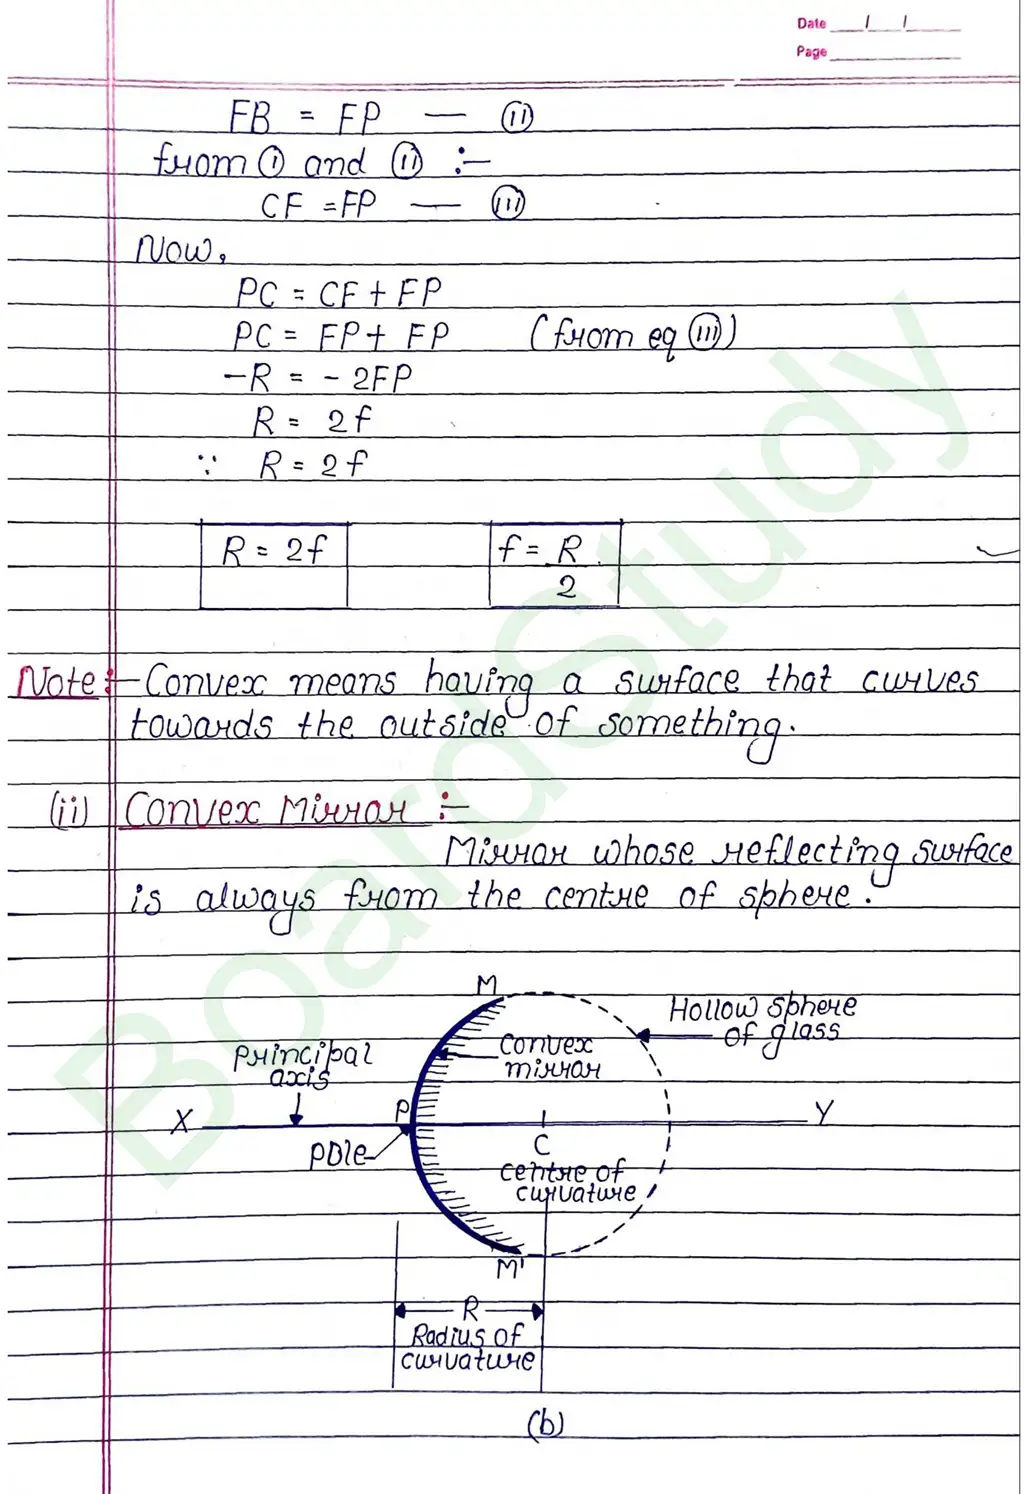 Date / /
Page
FB = FP — (ii)
from (i) and (ii) :-
CF = FP — (iii)
Now,
PC = CF + FP
PC = FP + FP (from eq (iii))
-R = - 2FP
R = 2f
∵ R = 2f
R = 2f
f = R
2
Note :- Convex means having a surface that curves
towards the outside of something.
(ii) Convex Mirror :-
Mirror whose reflecting surface
is always from the centre of sphere.
M
Hollow sphere
of glass
Convex
mirror
Principal
axis
X
P
Y
Pole
C
centre of
curvature
M'
R
Radius of
curvature
(b)
BoardStudy